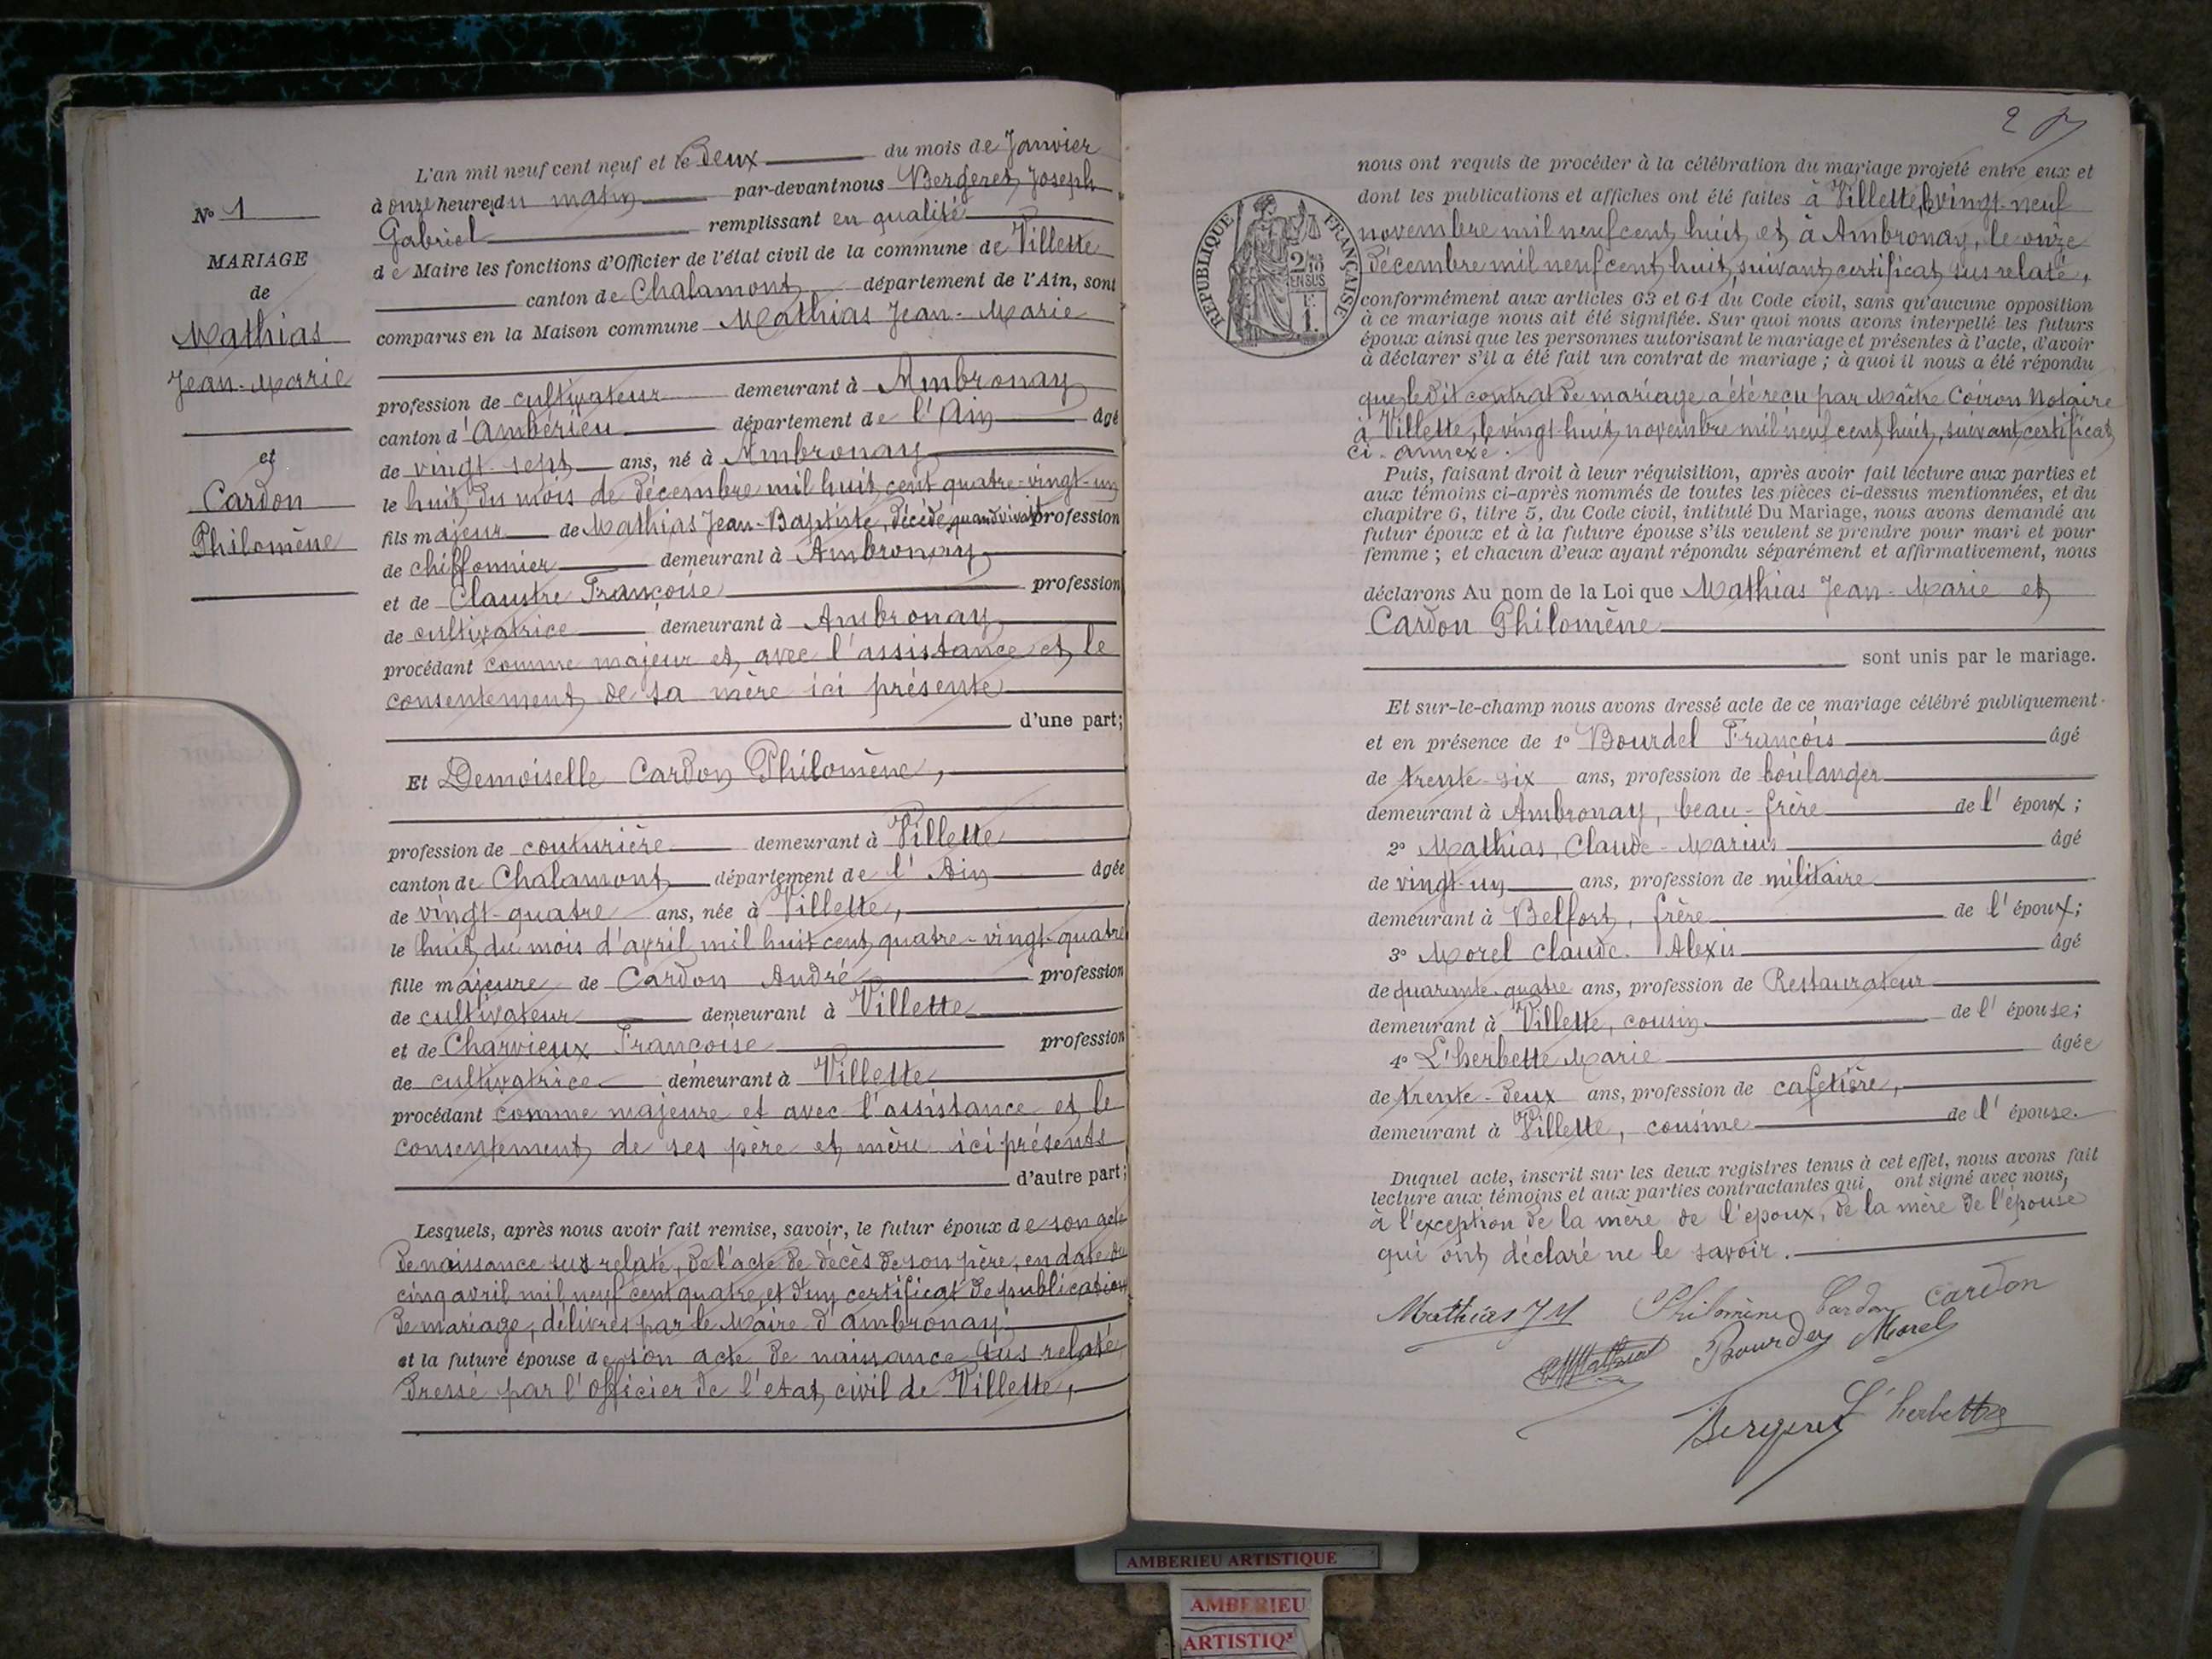 N° 1
MARIAGE
de
Mathias
Jean-Marie
et
Cardon
Philomène
L'an mil neuf cent neuf et le Deux du mois de Janvier
à onze heures du matin par-devant nous Bergeret Joseph
Gabriel remplissant en qualité
de Maire les fonctions d'Officier de l'état civil de la commune de Villette
canton de Chalamont département de l'Ain, sont
comparus en la Maison commune Mathias Jean-Marie
profession de cultivateur demeurant à Ambronay
canton d'Ambérieu département de l'Ain âgé
de vingt-sept ans, né à Ambronay
le huit du mois de décembre mil huit cent quatre-vingt-un
fils majeur de Mathias Jean-Baptiste, décédé, quand vivait profession
de chiffonnier demeurant à Ambronay
et de Claustre Françoise profession
de cultivatrice demeurant à Ambronay
procédant comme majeur et avec l'assistance et le
consentement de sa mère ici présente
d'une part;
Et Demoiselle Cardon Philomène,
profession de couturière demeurant à Villette
canton de Chalamont département de l'Ain âgée
de vingt-quatre ans, née à Villette,
le huit du mois d'avril mil huit cent quatre-vingt-quatre
fille majeure de Cardon André profession
de cultivateur demeurant à Villette
et de Charvieux Françoise profession
de cultivatrice demeurant à Villette
procédant comme majeure et avec l'assistance et le
consentement de ses père et mère ici présents
d'autre part;
Lesquels, après nous avoir fait remise, savoir, le futur époux de son acte
de naissance sus relaté, de l'acte de décès de son père, en date du
cinq avril mil neuf cent quatre, et d'un certificat de publication
de mariage, délivrés par le Maire d'Ambronay
et la future épouse de son acte de naissance sus relaté
dressé par l'officier de l'état civil de Villette,
2
RÉPUBLIQUE FRANÇAISE
2/10
EN SUS
1F.
nous ont requis de procéder à la célébration du mariage projeté entre eux et
dont les publications et affiches ont été faites à Villette, le vingt-neuf
novembre mil neuf cent huit, et à Ambronay, le onze
décembre mil neuf cent huit, suivant certificat sus relaté,
conformément aux articles 63 et 64 du Code civil, sans qu'aucune opposition
à ce mariage nous ait été signifiée. Sur quoi nous avons interpellé les futurs
époux ainsi que les personnes autorisant le mariage et présentes à l'acte, d'avoir
à déclarer s'il a été fait un contrat de mariage ; à quoi il nous a été répondu
que ledit contrat de mariage a été reçu par Maître Coiron Notaire
à Villette, le vingt-huit novembre mil neuf cent huit, suivant certificat
ci-annexé.
Puis, faisant droit à leur réquisition, après avoir fait lecture aux parties et
aux témoins ci-après nommés de toutes les pièces ci-dessus mentionnées, et du
chapitre 6, titre 5, du Code civil, intitulé Du Mariage, nous avons demandé au
futur époux et à la future épouse s'ils veulent se prendre pour mari et pour
femme ; et chacun d'eux ayant répondu séparément et affirmativement, nous
déclarons Au nom de la Loi que Mathias Jean-Marie et
Cardon Philomène
sont unis par le mariage.
Et sur-le-champ nous avons dressé acte de ce mariage célébré publiquement
et en présence de 1° Bourdel François âgé
de trente-six ans, profession de boulanger
demeurant à Ambronay, beau-frère de l'époux ;
2° Mathias, Claude-Marius âgé
de vingt-un ans, profession de militaire
demeurant à Belfort, frère de l'époux;
3° Morel Claude-Alexis âgé
de quarante-quatre ans, profession de Restaurateur
demeurant à Villette, cousin de l'épouse;
4° L'herbette Marie âgée
de trente-deux ans, profession de cafetière,
demeurant à Villette, cousine de l'épouse.
Duquel acte, inscrit sur les deux registres tenus à cet effet, nous avons fait
lecture aux témoins et aux parties contractantes qui ont signé avec nous,
à l'exception de la mère de l'époux, de la mère de l'épouse
qui ont déclaré ne le savoir.
Mathias JM Philomène Cardon Cardon
CMMathias Bourdel Morel
Bergeret L'herbette
AMBERIEU ARTISTIQUE
AMBERIEU
ARTISTIQ